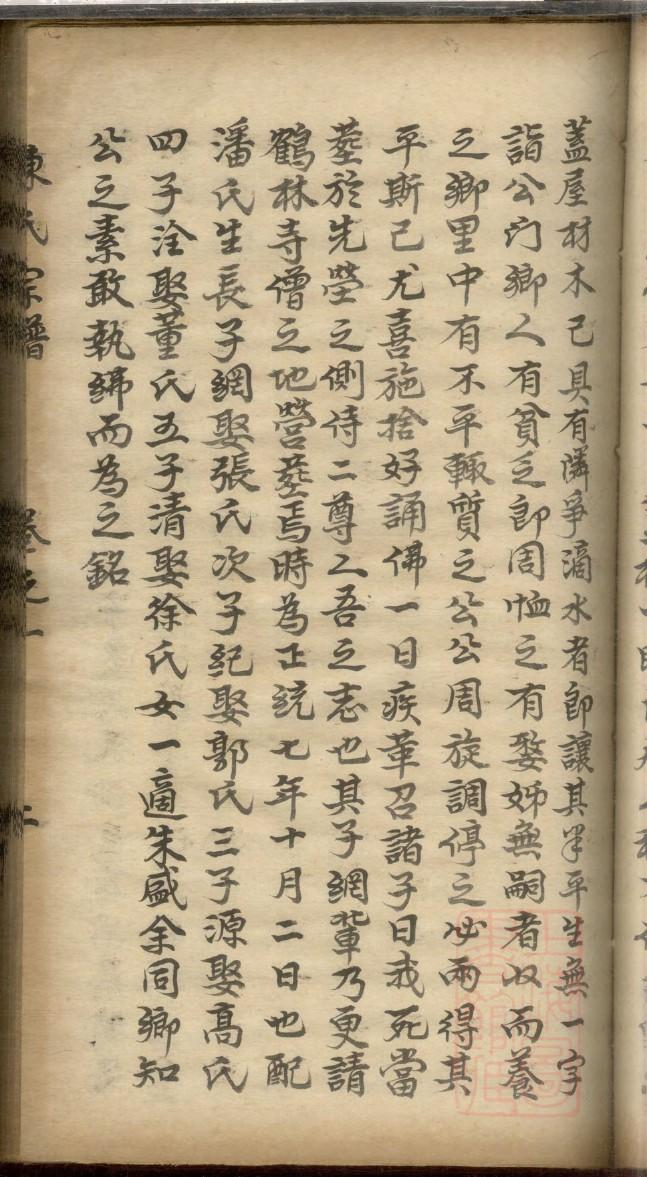 蓋屋材木已具有隣爭滴水者即讓其半平生無一字
詣公门鄉人有貧乏即周恤之有嫠姊無嗣者收而養
之鄉里中有不平輙質之公公周旋調停之必兩得其
平斯已尤喜施捨好誦佛一日疾革召諸子曰我死當
塟於先塋之側侍二尊人吾之志也其子綱軰乃更請
鶴林寺僧之地營塟焉時為正統七年十月二日也配
潘氏生長子綱娶張氏次子紀娶郭氏三子源娶高氏
四子淦娶董氏五子清娶徐氏女一適朱盛余同鄉知
公之素敢執紼而為之銘
陳氏宗譜 卷之一 二